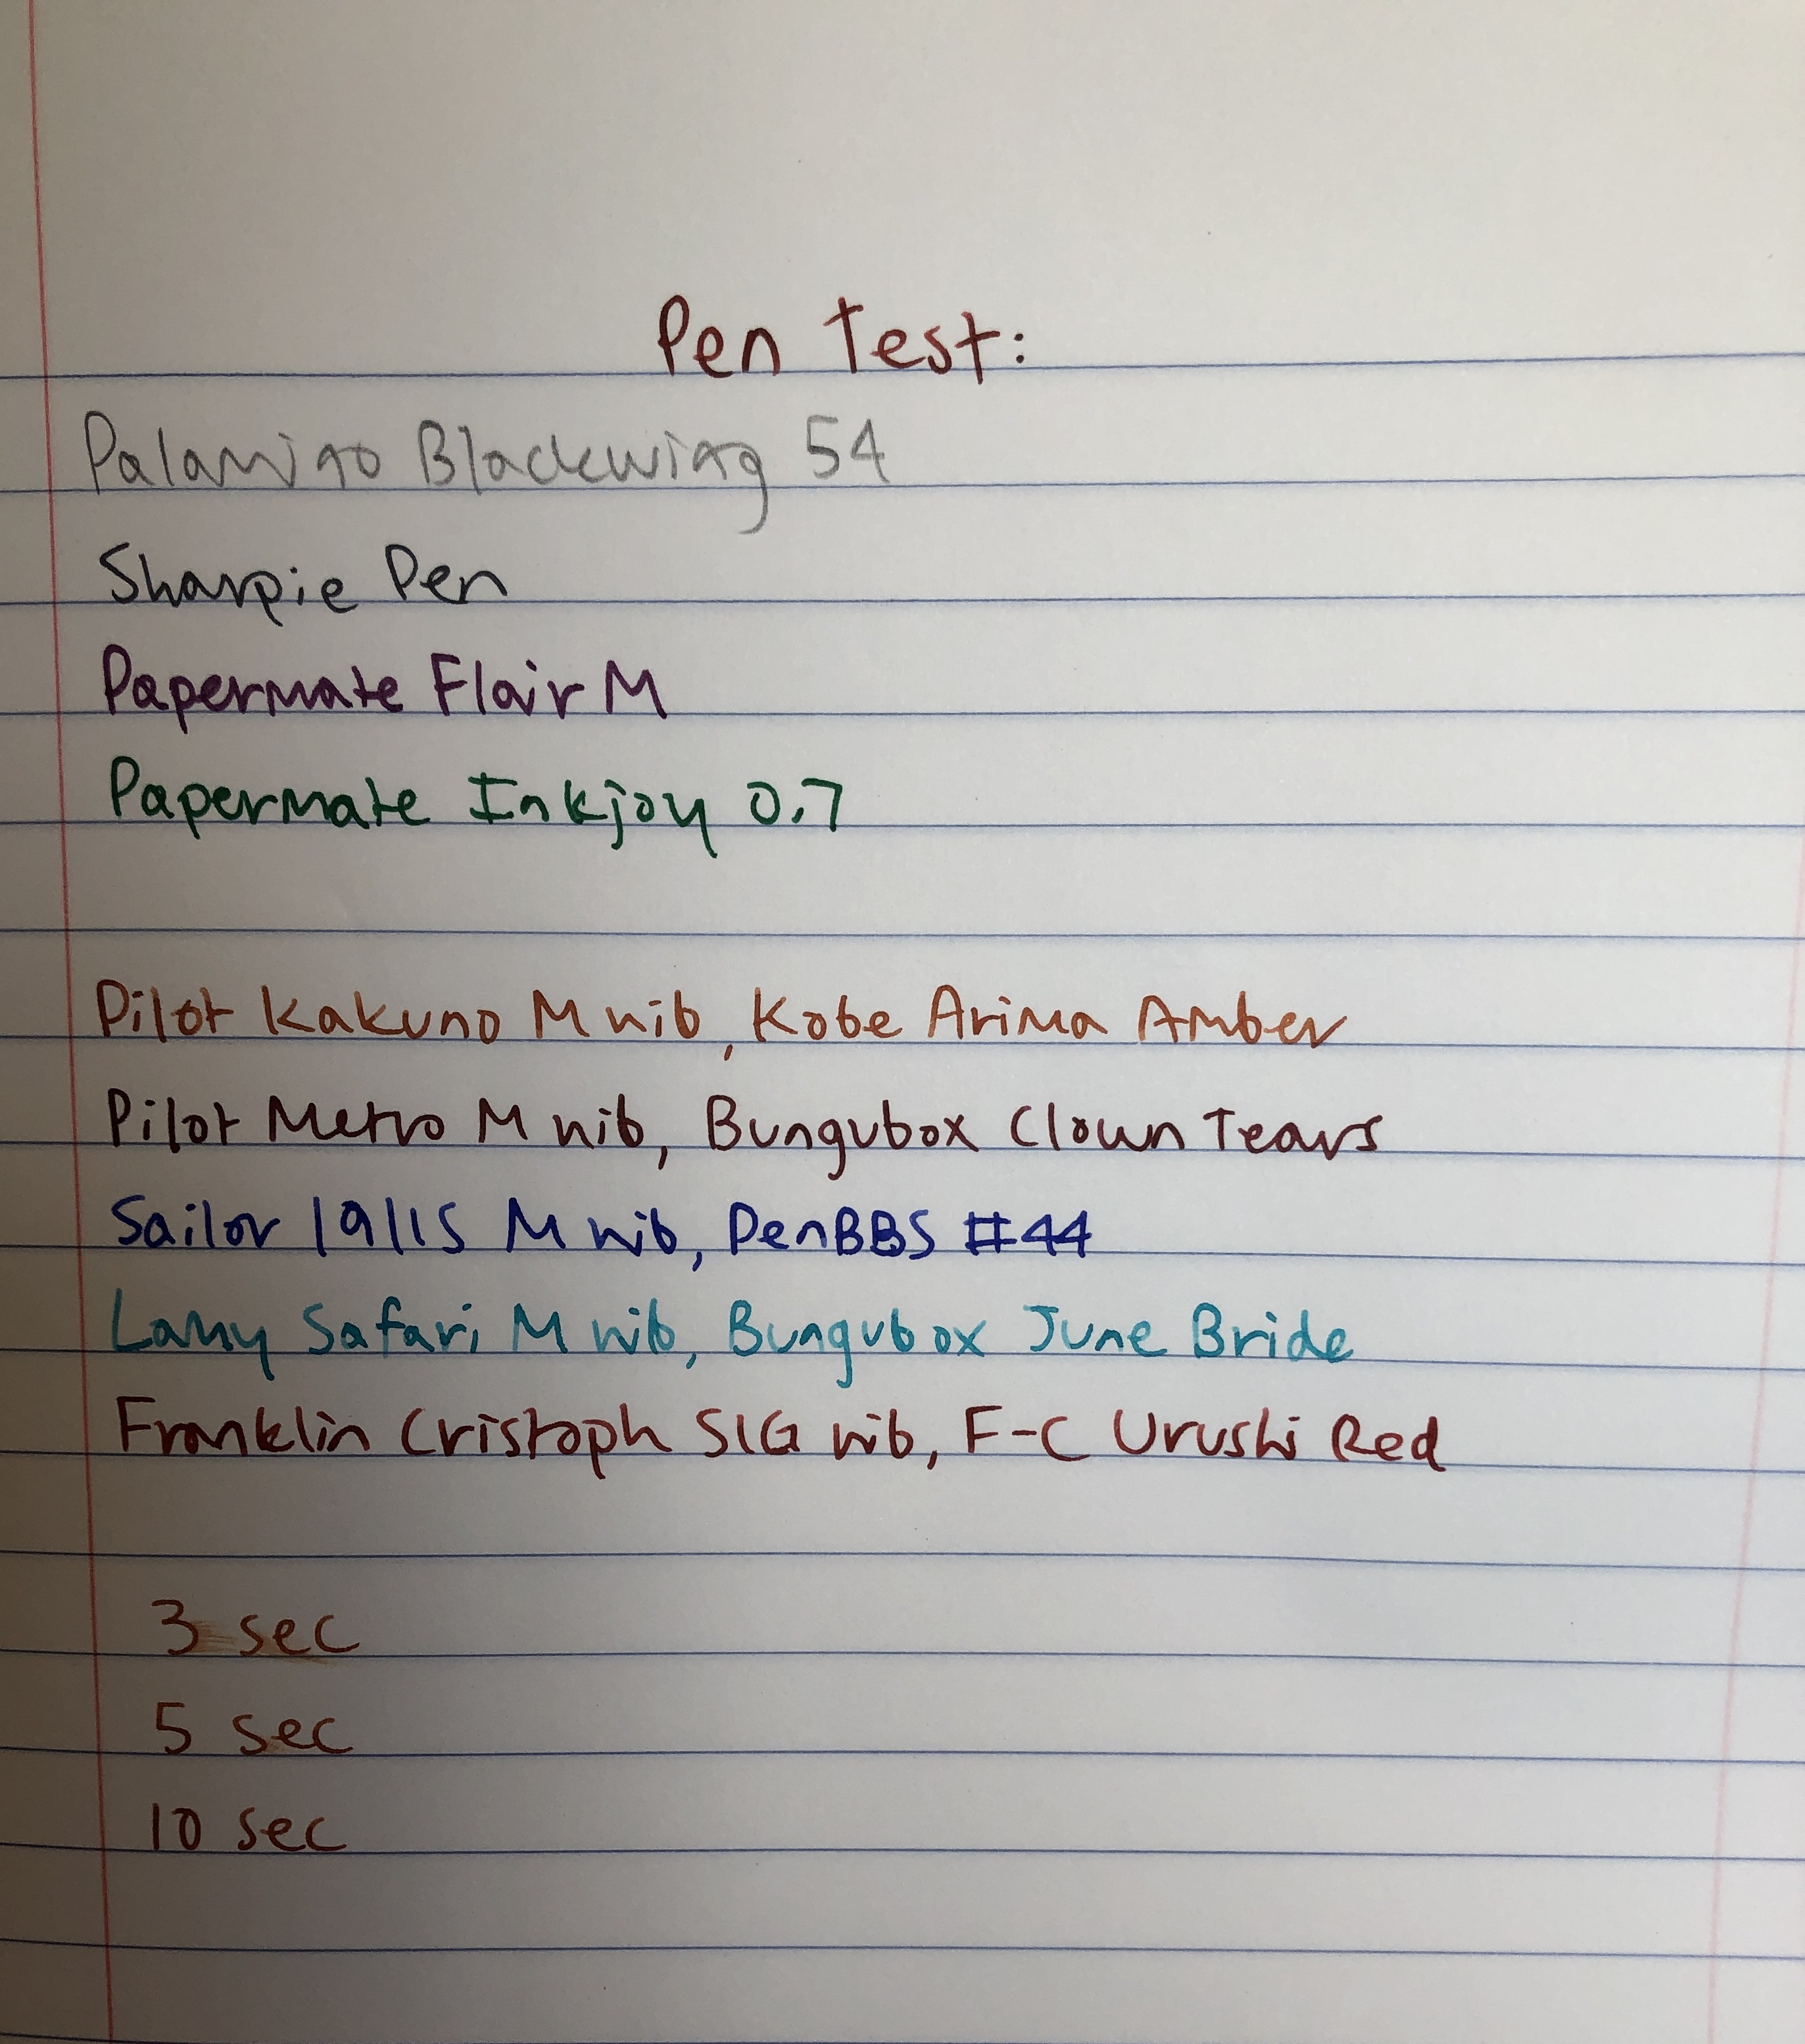 Pen Test:
Palamino Blackwing 54
Sharpie Pen
Papermate Flair M
Papermate Inkjoy 0.7
Pilot Kakuno M nib, Kobe Arima Amber
Pilot Metro M nib, Bungubox Clown Tears
Sailor 1911S M nib, PenBBS #44
Lamy Safari M nib, Bungubox June Bride
Franklin Cristoph SIG nib, F-C Urushi Red
3 sec
5 sec
10 sec